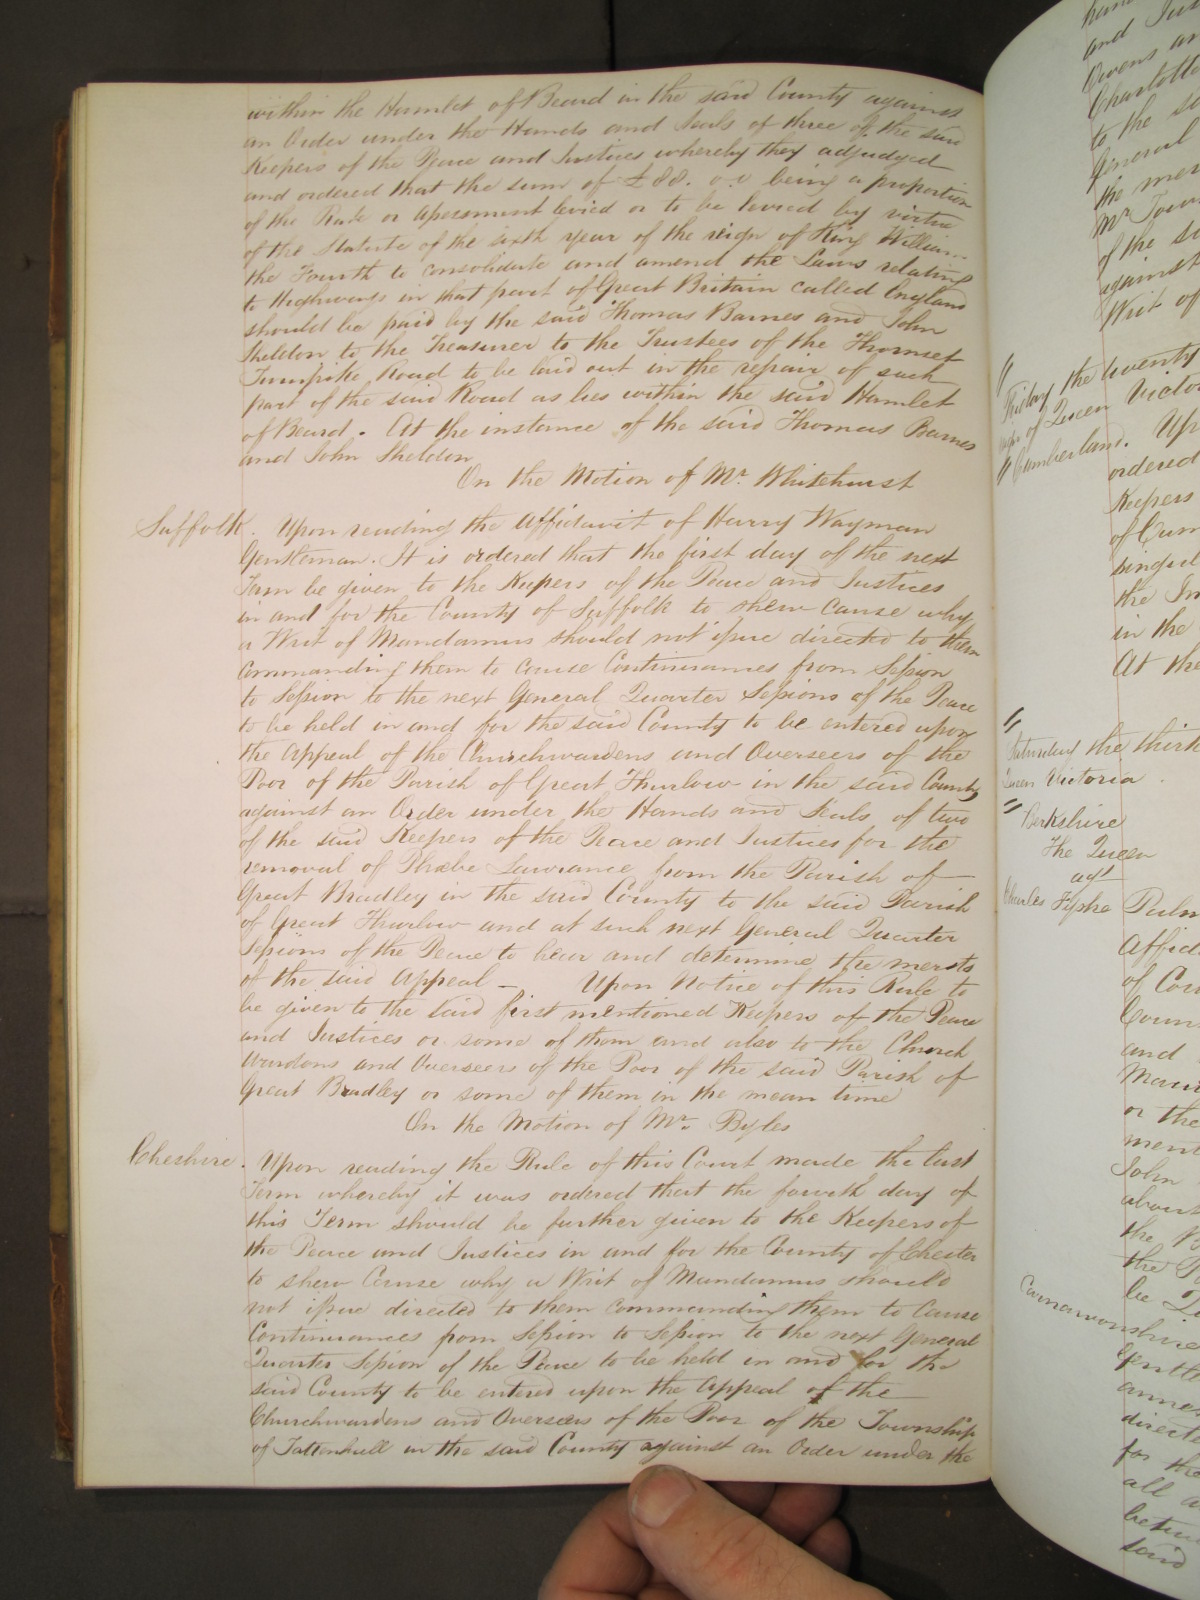 within the Hamlet of Beard in the said County against
an Order under the Hands and Seals of three of the said
Keepers of the Peace and Justices whereby they adjudged
and ordered that the sum of £88. 0. 0 being a proportion
of the Rate or Assessment levied or to be levied by virtue
of the Statute of the sixth year of the reign of King William
the Fourth to consolidate and amend the Laws relating
to Highways in that part of Great Britain called England
should be paid by the said Thomas Barnes and John
Sheldon to the Treasurer to the Trustees of the Thornset
Turnpike Road to be laid out in the repair of such
part of the said Road as lies within the said Hamlet
of Beard. At the instance of the said Thomas Barnes
and John Sheldon
On the Motion of Mr. Whitehurst
Suffolk. Upon reading the Affidavit of Harry Wayman
Gentleman. It is ordered that the first day of the next
Term be given to the Keepers of the Peace and Justices
in and for the County of Suffolk to shew cause why
a Writ of Mandamus should not issue directed to them
commanding them to cause Continuances from Session
to Session to the next General Quarter Sessions of the Peace
to be held in and for the said County to be entered upon
the appeal of the Churchwardens and Overseers of the
Poor of the Parish of Great Thurlow in the said County
against an Order under the Hands and Seals of two
of the said Keepers of the Peace and Justices for the
removal of Phœbe Lawrance from the Parish of
Great Bradley in the said County to the said Parish
of Great Thurlow and at such next General Quarter
Sessions of the Peace to hear and determine the merits
of the said Appeal – Upon Notice of this Rule to
be given to the said first mentioned Keepers of the Peace
and Justices or some of them and also to the Church
wardens and Overseers of the Poor of the said Parish of
Great Bradley or some of them in the mean time
On the Motion of Mr. Byles
Cheshire. Upon reading the Rule of this Court made the last
Term whereby it was ordered that the fourth day of
this Term should be further given to the Keepers of
the Peace and Justices in and for the County of Chester
to shew Cause why a Writ of Mandamus should
not issue directed to them commanding them to Cause
Continuances from Session to Session to the next General
Quarter Session of the Peace to be held in and for the
said County to be entered upon the appeal of the
Churchwardens and Overseers of the Poor of the Township
of Tattenhall in the said County against an Order under the
and
Owens
Charlotte
to the
General
the
Mr
of the
against
Writ of
Friday the twenty
of Queen Victor
Cumberland. Up
ordered
Keepers
of Cum
the
in the
At the
Saturday the thirt
Queen Victoria.
Berkshire
The Queen
agt
Charles Palm
Affid
of
Coun
and
or the
ment
John
about
the
the
be
Carnarvonshire
Gentle
annex
directe
for the
all
betwe
said